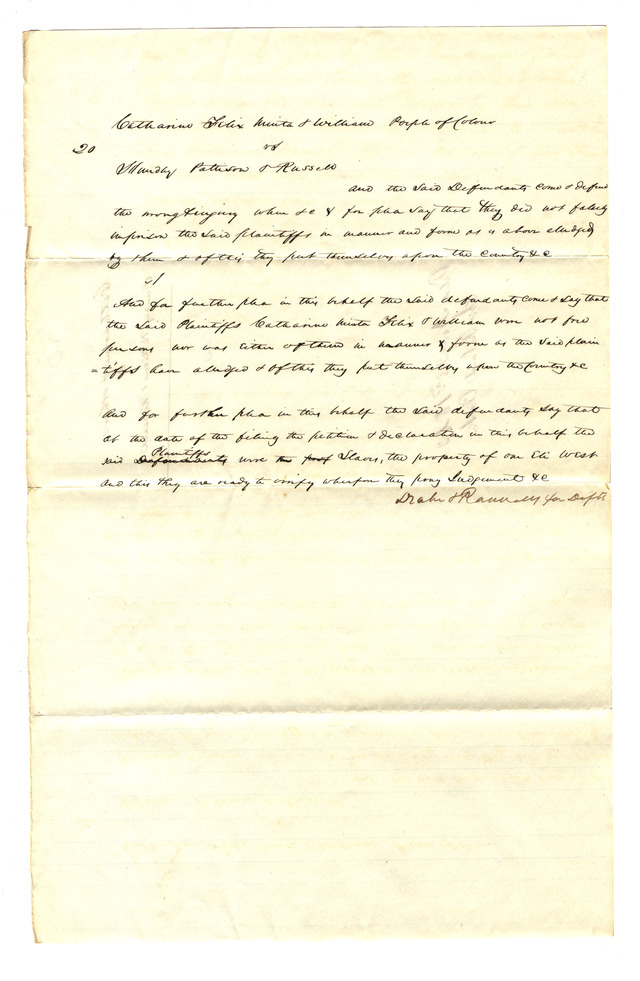 Catharine Felix Minta & William People of Colour
20 vs
Mundy Pattison & Russell
And the Said Defendants come & defend
the wrong & injury when &c & for plea Say that they did not falsely
imprison the Said plaintiffs in manner and form as is above alledged
by them & of this they put themselves upon the Country &c
And for further plea in this behalf the Said defendants come & Say that
the Said Plaintiffs Catharine Minta Felix & William were not free
persons nor was either of them in manner & form as the Said plain
=tiffs have alledged & of this they put themselves upon the Country &c
And for further plea in this behalf the Said defendants Say that
at the date of the filing the petition & declaration in this behalf the
Plaintiffs
said Defendants were Slaves, the property of one Eli West
and this they are ready to verify wherefore they pray Judgement &c
Drake & Rannells for Defts